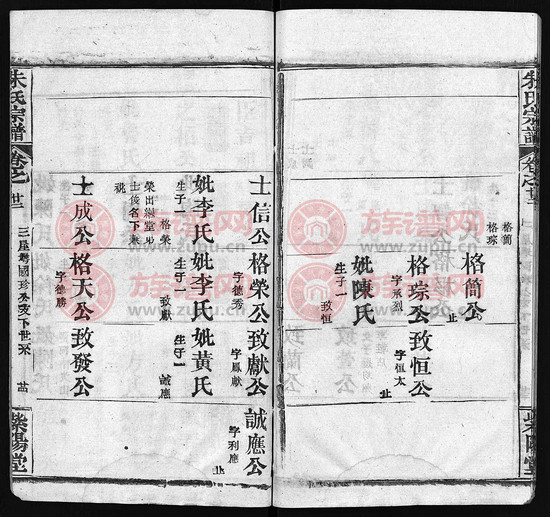 朱氏宗譜
格簡
格琮
格簡公
止
格琮公
字承烈
致恒公
字恒太
止
妣陳氏
生子一
致恒
士信公
格榮公
字德秀
致獻公
字鳳獻
誠應公
字利應
止
妣李氏
生子一
格榮
妣李氏
生子一
致獻
妣黃氏
生子一
誠應
士成公
格天公
字德勝
致發公
朱氏宗譜
三屋灣國珍公支下世系
紫陽堂
族谱网
www.zupu.cn
族谱网
www.zupu.cn